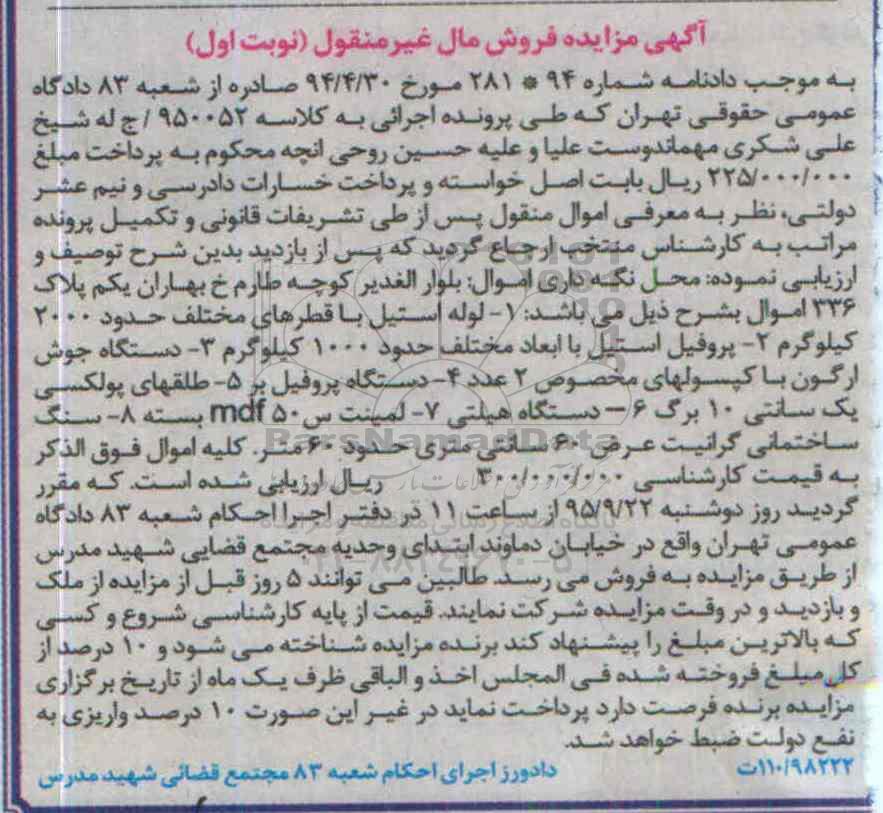 آگهی مزایده فروش مال غیرمنقول (نوبت اول)
به موجب دادنامه شماره ۹۴ * ۲۸۱ مورخ ۹۴/۴/۳۰ صادره از شعبه ۸۳ دادگاه
عمومی حقوقی تهران که طی پرونده اجرائی به کلاسه ۹۵۰۰۵۲ / ج له شیخ
علی شکری مهماندوست علیا و علیه حسین روحی انچه محکوم به پرداخت مبلغ
۲۲۵/۰۰۰/۰۰۰ ریال بابت اصل خواسته و پرداخت خسارات دادرسی و نیم عشر
دولتی، نظر به معرفی اموال منقول پس از طی تشریفات قانونی و تکمیل پرونده
مراتب به کارشناس منتخب ارجاع گردید که پس از بازدید بدین شرح توصیف و
ارزیابی نموده: محل نگه داری اموال: بلوار الغدیر کوچه طارم خ بهاران یکم پلاک
۳۳۶ اموال بشرح ذیل می باشد: ۱- لوله استیل با قطرهای مختلف حدود ۲۰۰۰
کیلوگرم ۲- پروفیل استیل با ابعاد مختلف حدود ۱۰۰۰ کیلوگرم ۳- دستگاه جوش
ارگون با کپسولهای مخصوص ۲ عدد ۴- دستگاه پروفیل بر ۵- طلقهای پولکسی
یک سانتی ۱۰ برگ ۶- دستگاه هیلتی ۷- لمینت س ۵۰ mdf بسته ۸- سنگ
ساختمانی گرانیت عرض ۶۰ سانتی متری حدود ۶۰ متر. کلیه اموال فوق الذکر
به قیمت کارشناسی ۳۰۰/۰۰۰/۰۰۰ ریال ارزیابی شده است. که مقرر
گردید روز دوشنبه ۹۵/۹/۲۲ از ساعت ۱۱ در دفتر اجرا احکام شعبه ۸۳ دادگاه
عمومی تهران واقع در خیابان دماوند ابتدای وحدیه مجتمع قضایی شهید مدرس
از طریق مزایده به فروش می رسد. طالبین می توانند ۵ روز قبل از مزایده از ملک
و بازدید و در وقت مزایده شرکت نمایند. قیمت از پایه کارشناسی شروع و کسی
که بالاترین مبلغ را پیشنهاد کند برنده مزایده شناخته می شود و ۱۰ درصد از
کل مبلغ فروخته شده فی المجلس اخذ و الباقی ظرف یک ماه از تاریخ برگزاری
مزایده برنده فرصت دارد پرداخت نماید در غیر این صورت ۱۰ درصد واریزی به
نفع دولت ضبط خواهد شد.
۱۱۰/۹۸۲۲۲ت
دادورز اجرای احکام شعبه ۸۳ مجتمع قضائی شهید مدرس
ParsNamadData